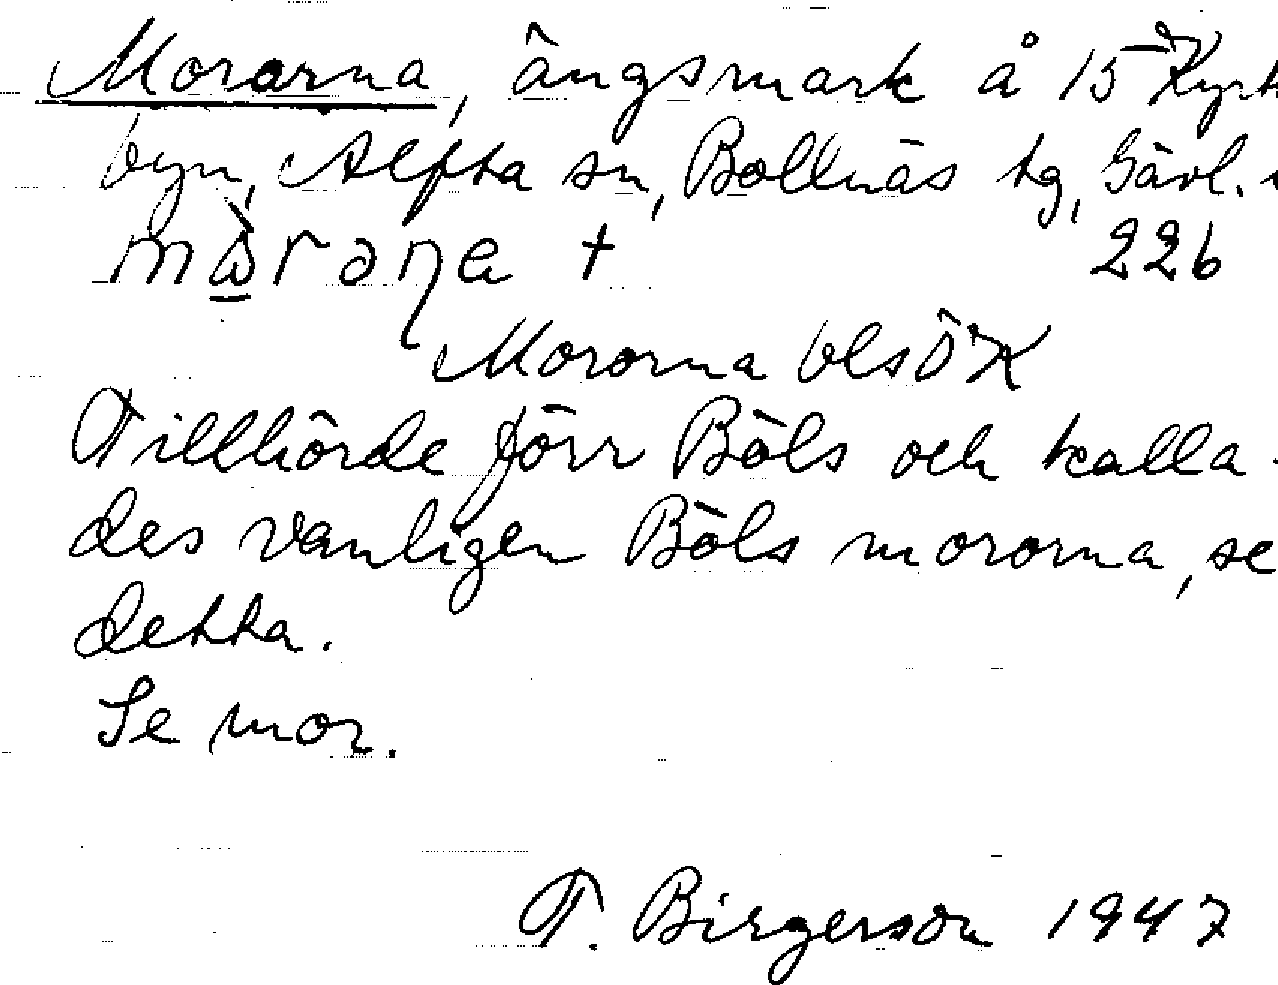 Morarna, ängsmark å 15 Kyrk
byn, Alfta sn, Bollnäs tg, Gävl.
mὼraŋa +
226
Mororna blsöK
Tillhörde förr Böls och kalla-
des vanligen Böls mororna, se
detta.
Se mor.
T. Birgerson 1947